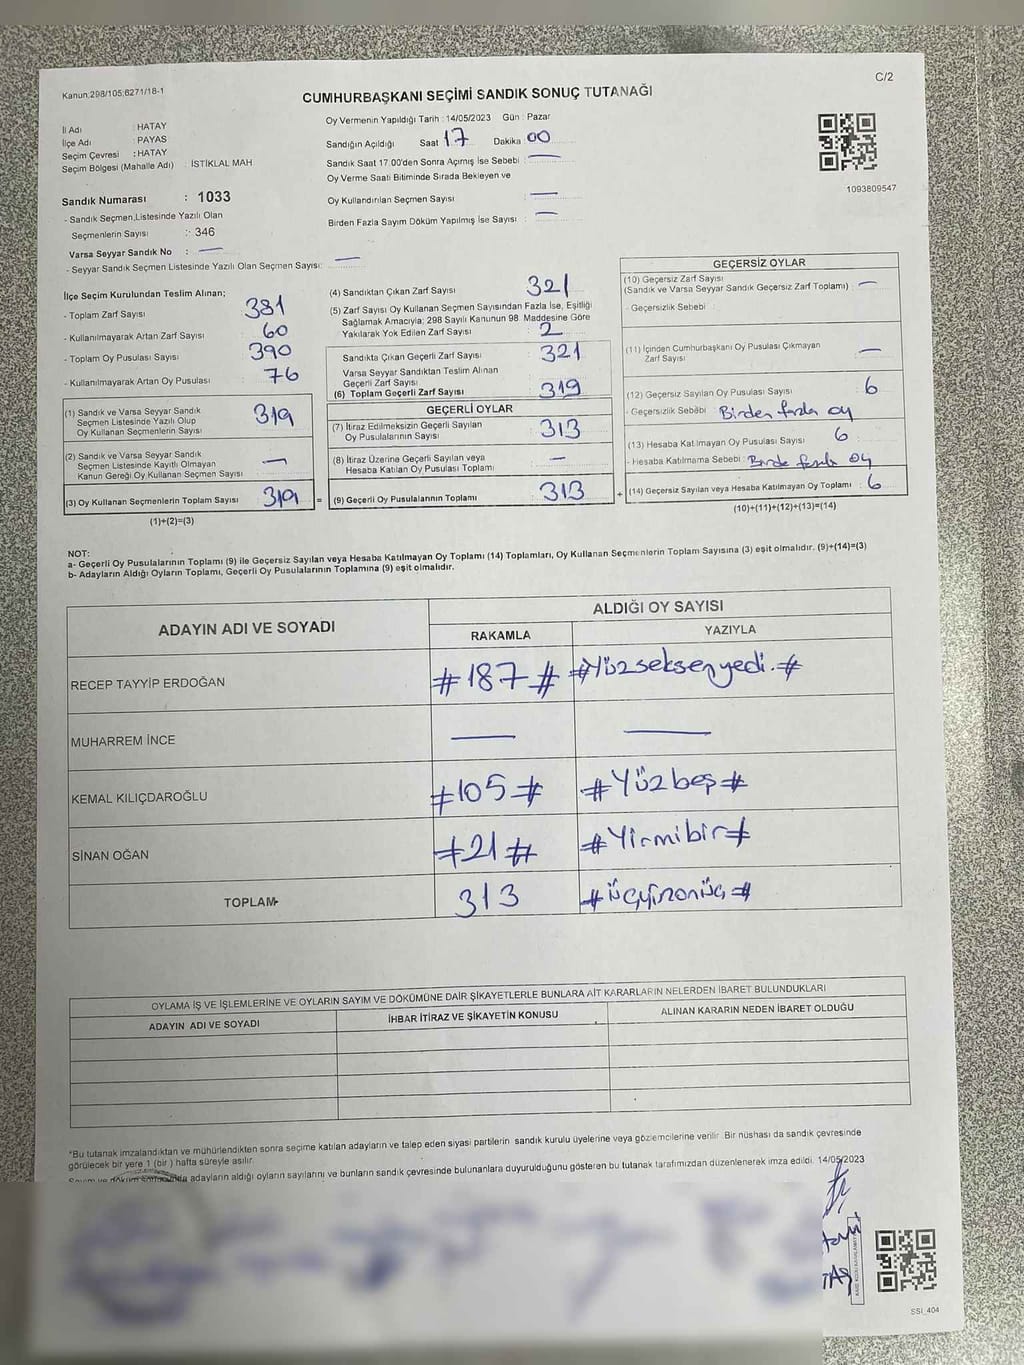 C/2
Kanun:298/105;6271/18-1
CUMHURBAŞKANI SEÇİMİ SANDIK SONUÇ TUTANAĞI
İl Adı : HATAY
İlçe Adı : PAYAS
Seçim Çevresi : HATAY
Seçim Bölgesi (Mahalle Adı) : İSTİKLAL MAH
Oy Vermenin Yapıldığı Tarih : 14/05/2023 Gün : Pazar
Sandığın Açıldığı Saat 17 Dakika 00
Sandık Saat 17:00'den Sonra Açımış İse Sebebi : —
Oy Verme Saati Bitiminde Sırada Bekleyen ve
Oy Kullandırılan Seçmen Sayısı : —
Birden Fazla Sayım Döküm Yapılmış İse Sayısı : —
1093809547
Sandık Numarası : 1033
- Sandık Seçmen Listesinde Yazılı Olan
Seçmenlerin Sayısı : 346
Varsa Seyyar Sandık No : —
- Seyyar Sandık Seçmen Listesinde Yazılı Olan Seçmen Sayısı: —
İlçe Seçim Kurulundan Teslim Alınan;
- Toplam Zarf Sayısı 381
- Kullanılmayarak Artan Zarf Sayısı 60
- Toplam Oy Pusulası Sayısı 390
- Kullanılmayarak Artan Oy Pusulası 76
(1) Sandık ve Varsa Seyyar Sandık
Seçmen Listesinde Yazılı Olup
Oy Kullanan Seçmenlerin Sayısı 319
(2) Sandık ve Varsa Seyyar Sandık
Seçmen Listesinde Kayıtlı Olmayan
Kanun Gereği Oy Kullanan Seçmen Sayısı —
(3) Oy Kullanan Seçmenlerin Toplam Sayısı 319 =
(1)+(2)=(3)
(4) Sandıktan Çıkan Zarf Sayısı 321
(5) Zarf Sayısı Oy Kullanan Seçmen Sayısından Fazla İse, Eşitliği
Sağlamak Amacıyla; 298 Sayılı Kanunun 98. Maddesine Göre
Yakılarak Yok Edilen Zarf Sayısı 2
Sandıkta Çıkan Geçerli Zarf Sayısı 321
Varsa Seyyar Sandıktan Teslim Alınan
Geçerli Zarf Sayısı
(6) Toplam Geçerli Zarf Sayısı 319
GEÇERLİ OYLAR
(7) İtiraz Edilmeksizin Geçerli Sayılan
Oy Pusulalarının Sayısı 313
(8) İtiraz Üzerine Geçerli Sayılan veya
Hesaba Katılan Oy Pusulası Toplamı —
(9) Geçerli Oy Pusulalarının Toplamı 313 +
GEÇERSİZ OYLAR
(10) Geçersiz Zarf Sayısı
(Sandık ve Varsa Seyyar Sandık Geçersiz Zarf Toplamı) : —
- Geçersizlik Sebebi :
(11) İçinden Cumhurbaşkanı Oy Pusulası Çıkmayan
Zarf Sayısı —
(12) Geçersiz Sayılan Oy Pusulası Sayısı : 6
- Geçersizlik Sebebi Birden fazla oy
(13) Hesaba Katılmayan Oy Pusulası Sayısı 6
- Hesaba Katılmama Sebebi : Birde fazla oy
(14) Geçersiz Sayılan veya Hesaba Katılmayan Oy Toplamı : 6
(10)+(11)+(12)+(13)=(14)
NOT:
a- Geçerli Oy Pusulalarının Toplamı (9) ile Geçersiz Sayılan veya Hesaba Katılmayan Oy Toplamı (14) Toplamları, Oy Kullanan Seçmenlerin Toplam Sayısına (3) eşit olmalıdır. (9)+(14)=(3)
b- Adayların Aldığı Oyların Toplamı, Geçerli Oy Pusulalarının Toplamına (9) eşit olmalıdır.
ADAYIN ADI VE SOYADI
ALDIĞI OY SAYISI
RAKAMLA YAZIYLA
RECEP TAYYİP ERDOĞAN #187# #Yüzseksenyedi.#
MUHARREM İNCE — —
KEMAL KILIÇDAROĞLU #105# #Yüzbeş#
SİNAN OĞAN #21# #Yirmibir#
TOPLAM 313 #üçyüzonüç#
OYLAMA İŞ VE İŞLEMLERİNE VE OYLARIN SAYIM VE DÖKÜMÜNE DAİR ŞİKAYETLERLE BUNLARA AİT KARARLARIN NELERDEN İBARET BULUNDUKLARI
ADAYIN ADI VE SOYADI İHBAR İTİRAZ VE ŞİKAYETİN KONUSU ALINAN KARARIN NEDEN İBARET OLDUĞU
*Bu tutanak imzalandıktan ve mühürlendikten sonra seçime katılan adayların ve talep eden siyasi partilerin sandık kurulu üyelerine veya gözlemcilerine verilir. Bir nüshası da sandık çevresinde
görülecek bir yere 1 (bir) hafta süreyle asılır.
Sayım ve döküm sonucunda adayların aldığı oyların sayılarını ve bunların sandık çevresinde bulunanlara duyurulduğunu gösteren bu tutanak tarafımızdan düzenlenerek imza edildi. 14/05/2023
SSI_404